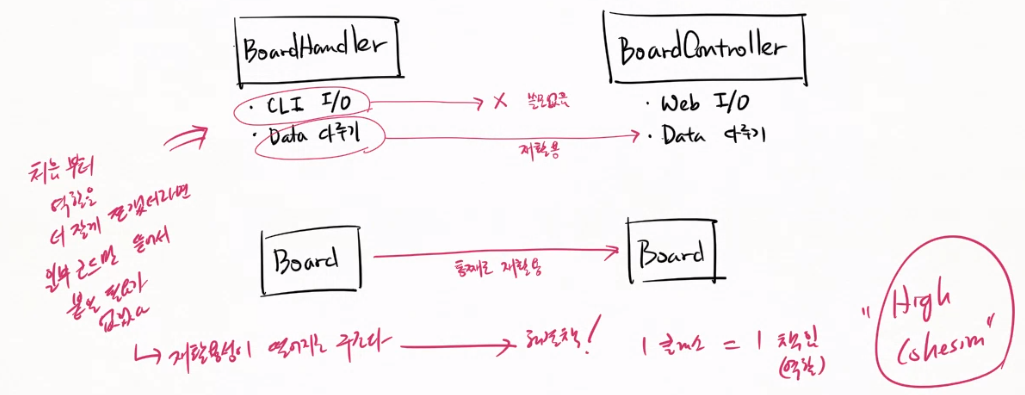 BoardHandler
· CLI I/O
· Data 다루기
X 쓸모없음
재활용
BoardController
· Web I/O
· Data 다루기
처음부터
역할을
더 잘게 쪼갰더라면
일부 코드만 뜯어서
붙일 필요가
없었다
Board
통째로 재활용
Board
↳ 재활용성이 떨어지는 구조다
해결책!
1 클래스 = 1 책임
(역할)
"High
Cohesion"